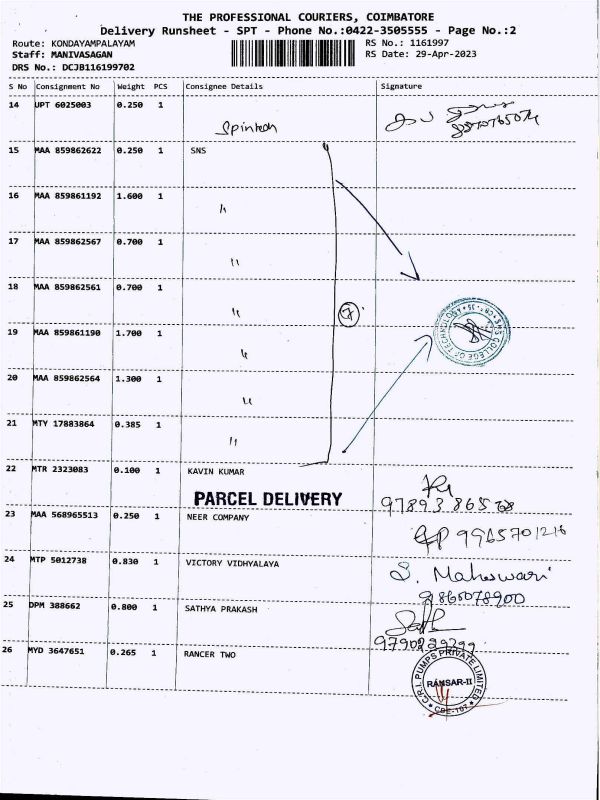 THE PROFESSIONAL COURIERS, COIMBATORE
Delivery Runsheet - SPT - Phone No.:0422-3505555 - Page No.:2
Route: KONDAYAMPALAYAM RS No.: 1161997
Staff: MANIVASAGAN RS Date: 29-Apr-2023
DRS No.: DCJB116199702
S No Consignment No Weight PCS Consignee Details Signature
14 UPT 6025003 0.250 1
15 MAA 859862622 0.250 1 SNS
16 MAA 859861192 1.600 1 "
17 MAA 859862567 0.700 1 "
18 MAA 859862561 0.700 1 "
7
SNS COLLEGE OF TECHNOLOGY * CBE-35 *
19 MAA 859861190 1.700 1 "
20 MAA 859862564 1.300 1 "
21 MTY 17883864 0.385 1 "
22 MTR 2323083 0.100 1 KAVIN KUMAR
PARCEL DELIVERY
23 MAA 568965513 0.250 1 NEER COMPANY 9965701216
24 MTP 5012738 0.830 1 VICTORY VIDHYALAYA S. Maheswari
9860078900
25 DPM 388662 0.800 1 SATHYA PRAKASH
9790239299
26 MYD 3647651 0.265 1 RANCER TWO
C.R.I. PUMPS PRIVATE LIMITED
RANSAR-II
* CBE-107 *